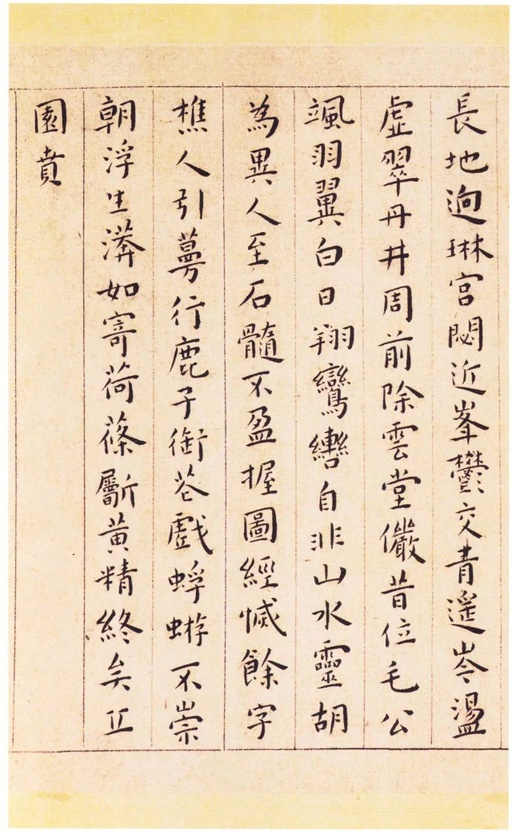 長地逈琳宫閟近峯鬱交青遥岑盪
虚翠丹井周前除雲堂儼昔位毛公
颯羽翼白日翔鸞轡自非山水靈胡
為異人至石髓不盈握圖經慽餘字
樵人引蔓行鹿子銜花戲蜉蝣不崇
朝浮生漭如寄荷蓧斸黄精終矣丘
園賁